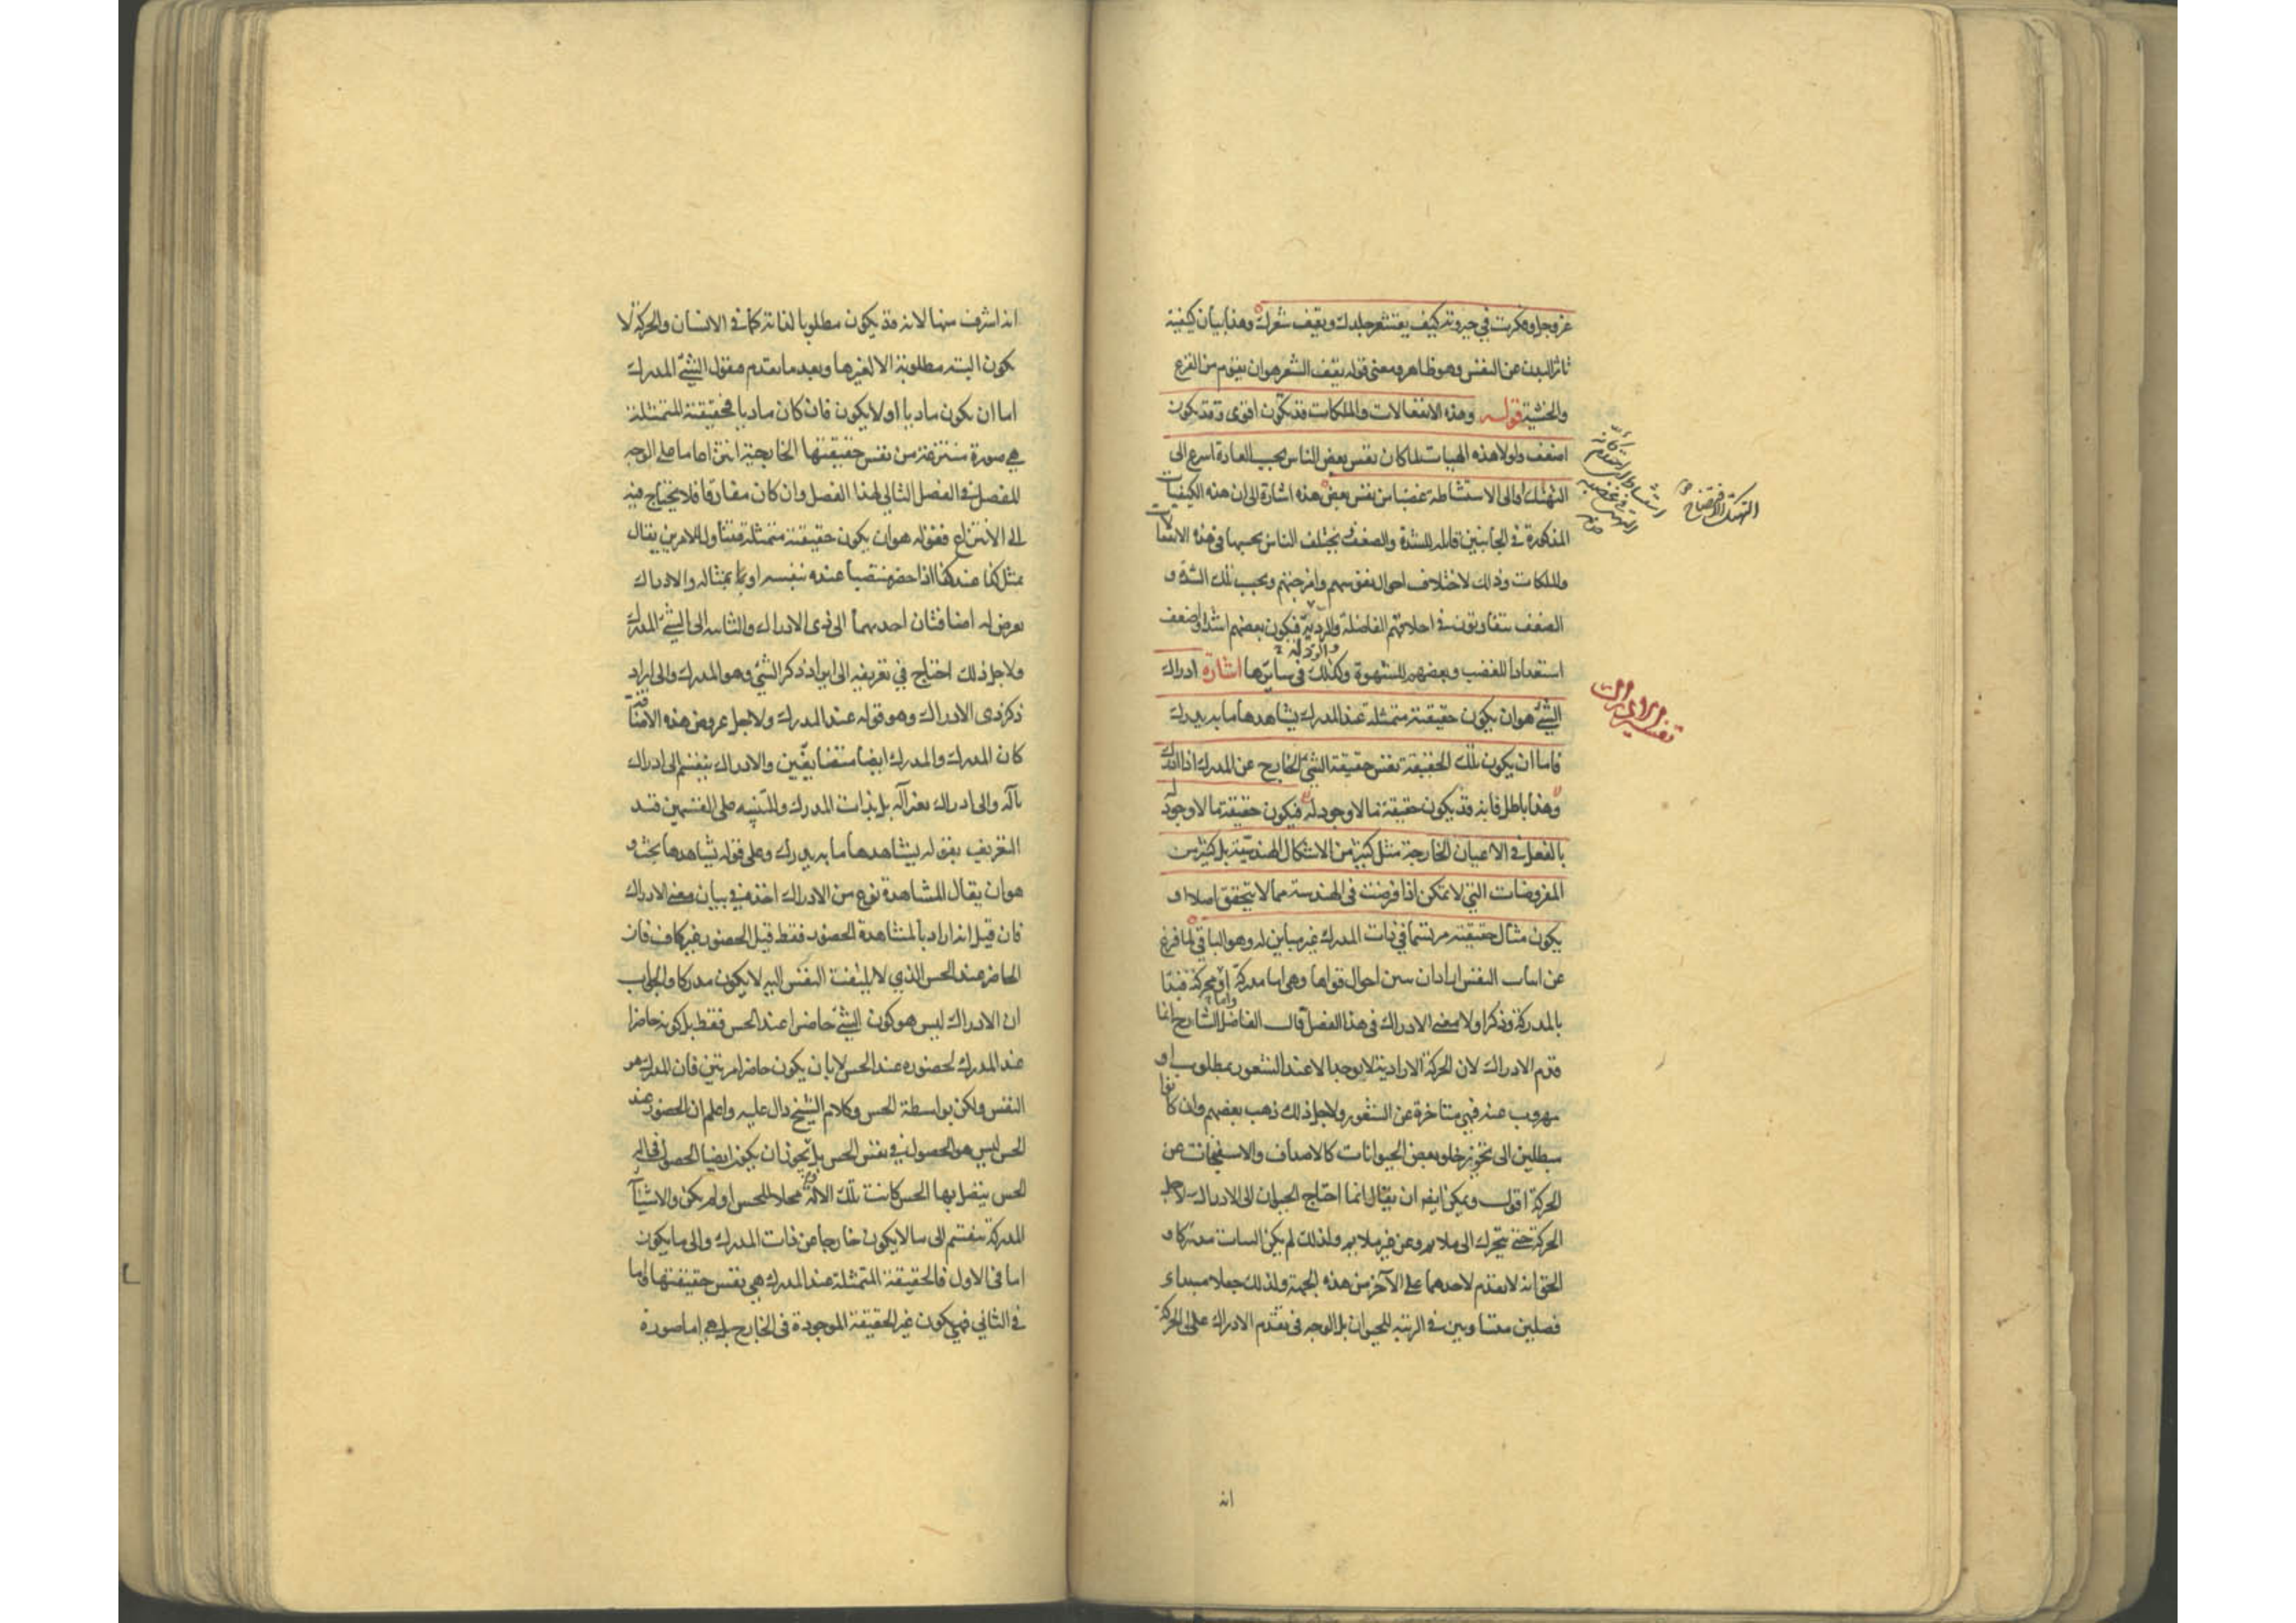 عز وجل وفكرت في جبروته كيف يقشعر جلدك ويقف شعرك وهذا بيان كيفية
تاثر البدن عن النفس وهو ظاهر ومعنى قوله يقف الشعر هو ان يقوم من الفزع
والخشية قوله وهذه الانفعالات والملكات قد يكون اقوى وقد يكون
اضعف ولولا هذه الهيات لما كان نفس بعض الناس بحسب العادة اسرع الى
التهتك او الى الاستشاطه غضبا من نفس بعض هذه اشارة الى ان هذه الكيفيات
المذكورة في الجانبين قابله للشدة والضعف يختلف الناس بحسبها في هذه الانفعالات
والملكات وذلك لاختلاف احوال نفوسهم وامزجتهم وبحسب تلك الشدة و
الضعف يتفاوتون في اخلاقهم الفاضلة والردية فيكون بعضهم اشد او اضعف
والرذلة
استعدادا للغضب وبعضهم للشهوة وكذلك في سايرها اشارة ادراك
الشئ هو ان يكون حقيقته متمثلة عند المدرك يشاهدها ما به يدرك
فاما ان يكون تلك الحقيقة نفس حقيقة الشئ الخارج عن المدرك اذا ادرك
وهذا باطل فانه قد يكون حقيقة ما لا وجود له فيكون حقيقة ما لا وجود له
بالفعل في الاعيان الخارجة مثل كثير من الاشكال الهندسية بل كثير من
المفروضات التي لا تمكن اذا فرضت في الهندسة مما لا يتحقق اصلا او
يكون مثال حقيقته مرتسما في ذات المدرك غير مباين له وهو الباقي لما فرغ
عن اثبات النفس اراد ان يبين احوال قواها وهي اما مدركة واما محركة فبدا
بالمدركة وذكر اولا معنى الادراك في هذا الفصل قال الفاضل الشارح انما
قدم الادراك لان الحركة الارادية لا يوجد الا عند الشعور بمطلوب او
مهروب عنه فهي متاخرة عن الشعور ولاجل ذلك ذهب بعضهم وان كانوا
مبطلين الى تجويز خلو بعض الحيوانات كالاصداف والاسفنجات عن
الحركة اقول ويمكن ايضا ان يقال انما احتاج الحيوان الى الادراك لاجل
الحركة حتى يتحرك الى ملايم وعن غير ملايم ولذلك لم يكن النبات مدركا و
الحق انه لا تقدم لاحدهما على الآخر من هذه الجهة ولذلك جعلا مبداء
فصلين متساويين في الرتبة للحيوان بل الوجه في تقدم الادراك على الحركة
انه
التهتك الافتضاح
تفسير ادراك
انه اشرف منها لانه قد يكون مطلوبا لذاته كما في الانسان والحركة لا
يكون البته مطلوبة الا لغيرها وبعد ما تقدم فنقول الشئ المدرك
اما ان يكون ماديا او لا يكون فان كان ماديا فحقيقته المتمثلة
هي صورة منتزعة من نفس حقيقتها الخارجية انتزاعا ما على الوجه
المفصل في الفصل التالي لهذا الفصل وان كان مفارقا فلا يحتاج فيه
الى الانتزاع فقوله هو ان يكون حقيقته متمثلة متناول للامرين يقال
تمثل كذا عند كذا اذا حضر منتصبا عنده بنفسه او بمثاله والادراك
يعرض له اضافتان احديهما الى ذى الادراك والثانيه الى الشئ المدرك
ولاجل ذلك احتاج في تعريفه الى ايراد ذكر الشئ وهو المدرك والى ايراد
ذكر ذى الادراك وهو قوله عند المدرك ولاجل عروض هذه الاضافة
كان المدرك والمدرك ايضا متضايفين والادراك ينقسم الى ادراك
بآلة والى ادراك بغير آلة بل بذات المدرك وللتنبيه على القسمين قيد
التعريف بقوله يشاهدها ما به يدرك وعلى قوله يشاهدها بحث و
هو ان يقال المشاهدة نوع من الادراك اخذه في بيان معنى الادراك
فان قيل انه اراد بالمشاهدة الحضور فقط قيل الحضور غير كاف فان
الحاضر عند الحس الذي لا يلتفت النفس اليه لا يكون مدركا والجواب
ان الادراك ليس هو كون الشئ حاضرا عند الحس فقط بل كونه حاضرا
عند المدرك لحضوره عند الحس لا بان يكون حاضرا مرتين فان المدرك هو
النفس ولكن بواسطة الحس وكلام الشيخ دال عليه واعلم ان الحضور عند
الحس ليس هو الحصول في نفس الحس بل يجوز ان يكون ايضا الحصول في آلة
الحس يتصل بها الحس كانت تلك الالة محلا للحس او لم يكن والاشياء
المدركة تنقسم الى ما لا يكون خارجا عن ذات المدرك والى ما يكون
اما في الاول فالحقيقة المتمثلة عند المدرك هي نفس حقيقتها واما
في الثاني فهي يكون غير الحقيقة الموجودة في الخارج بل هي اما صورة